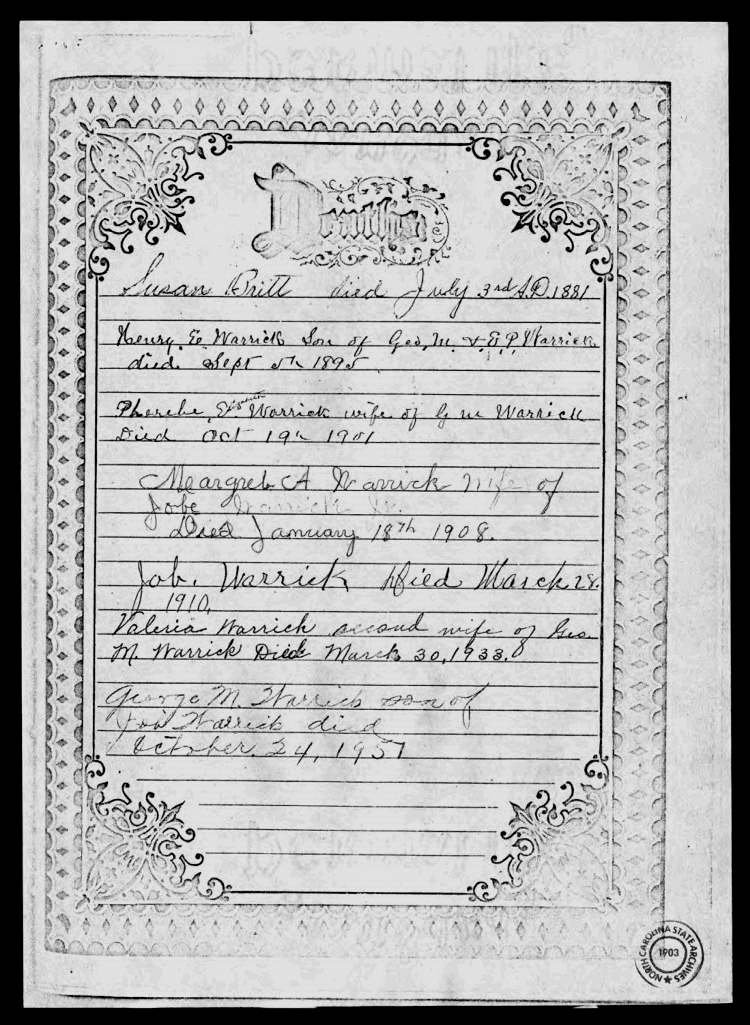 Deaths.
Susan Britt died July 3rd A.D. 1881
Henry. E. Warrick Son of Geo, M. & E, P, Warrick
died. Sept 5th 1895
Pherebe, Elizabeth Warrick wife of G M Warrick
Died Oct 19th 1901
Meargret A Warrick Wife of
Jobe Warrick
Died January 18th 1908.
Job. Warrick Died March 28.
1910,
Valeria Warrick second wife of Geo.
M. Warrick Died March 30, 1933.
George M. Warrick son of
Warrick died
October 24, 1951
NORTH CAROLINA STATE ARCHIVES
1903